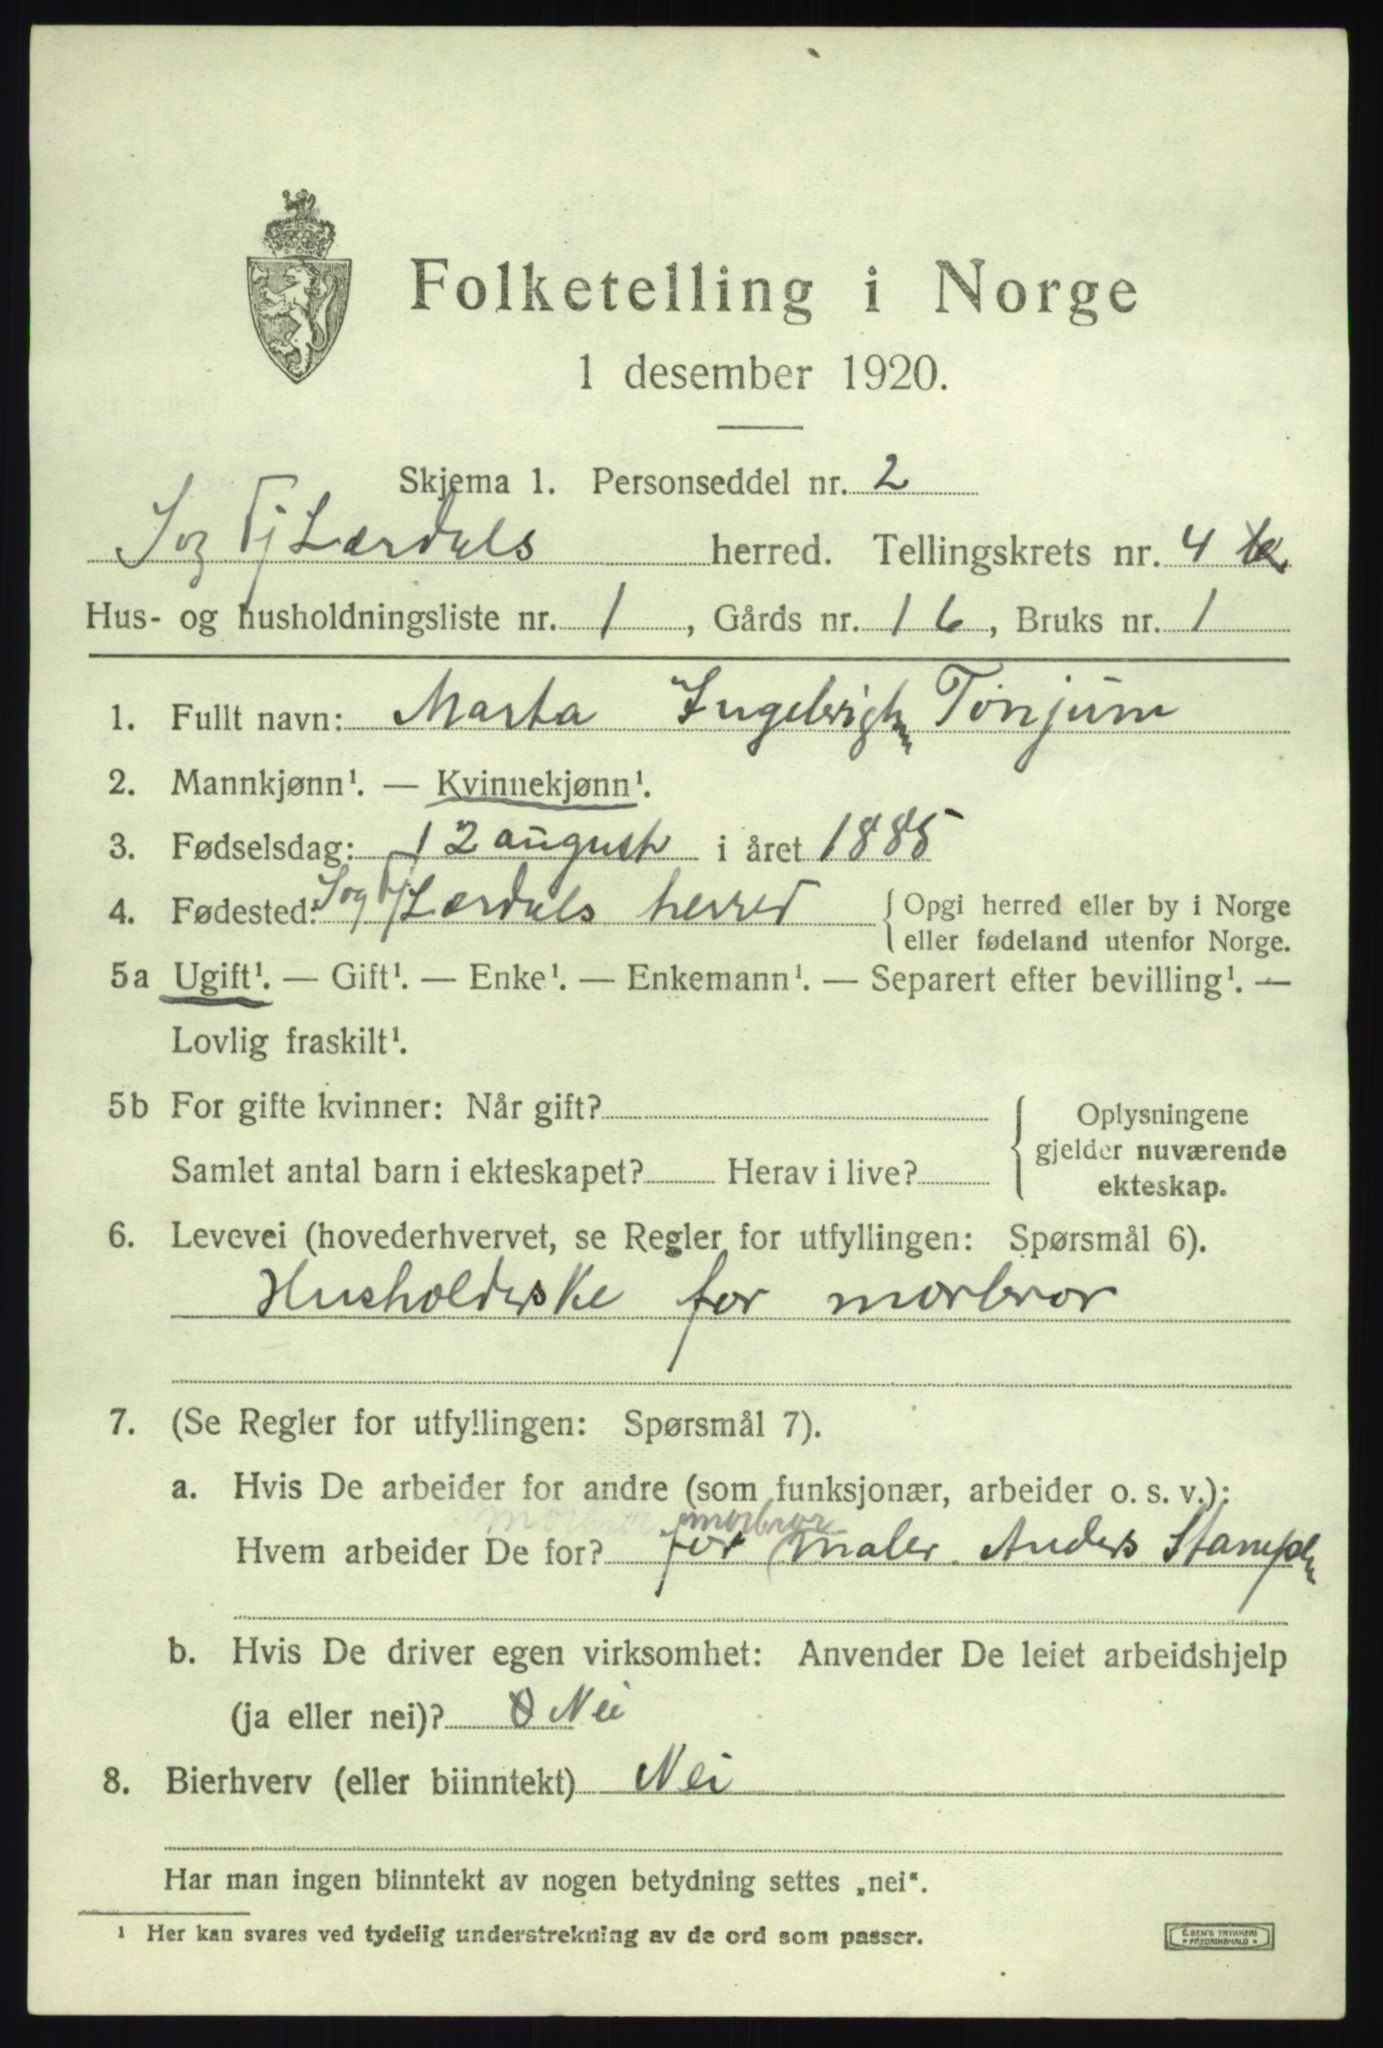 Folketelling i Norge
1 desember 1920.
Skjema 1. Personseddel nr. 2
Sogfj Lærdals herred. Tellingskrets nr. 4
Hus- og husholdningsliste nr. 1, Gårds nr. 16, Bruks nr. 1
1. Fullt navn: Marta Tönjum
2. Mannkjønn¹. — Kvinnekjønn¹.
3. Fødselsdag: 12 august i året 1885
4. Fødested: Sogfj Lærdals herred { Opgi herred eller by i Norge
eller fødeland utenfor Norge.
5a Ugift¹. — Gift¹. — Enke¹. — Enkemann¹. — Separert efter bevilling¹. —
Lovlig fraskilt¹.
5b For gifte kvinner: Når gift? { Oplysningene
gjelder nuværende
ekteskap.
Samlet antal barn i ekteskapet? Herav i live?
6. Levevei (hovederhvervet, se Regler for utfyllingen: Spørsmål 6).
Husholderske for morbror
7. (Se Regler for utfyllingen: Spørsmål 7).
a. Hvis De arbeider for andre (som funksjonær, arbeider o. s. v.):
morbror morbror
Hvem arbeider De for? for maler Anders
b. Hvis De driver egen virksomhet: Anvender De leiet arbeidshjelp
(ja eller nei)? Nei
8. Bierhverv (eller biinntekt) Nei
Har man ingen biinntekt av nogen betydning settes „nei“.
¹ Her kan svares ved tydelig understrekning av de ord som passer.
E. SEM'S TRYKKERI
• FREDRIKSHALD •